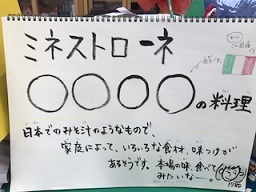 ミネストローネ
○○○○の料理
日本でのみそ汁のようなもので、
家庭によって、いろいろな食材、味つけが
あるそうです。本場の味、食べて
みたいなー。